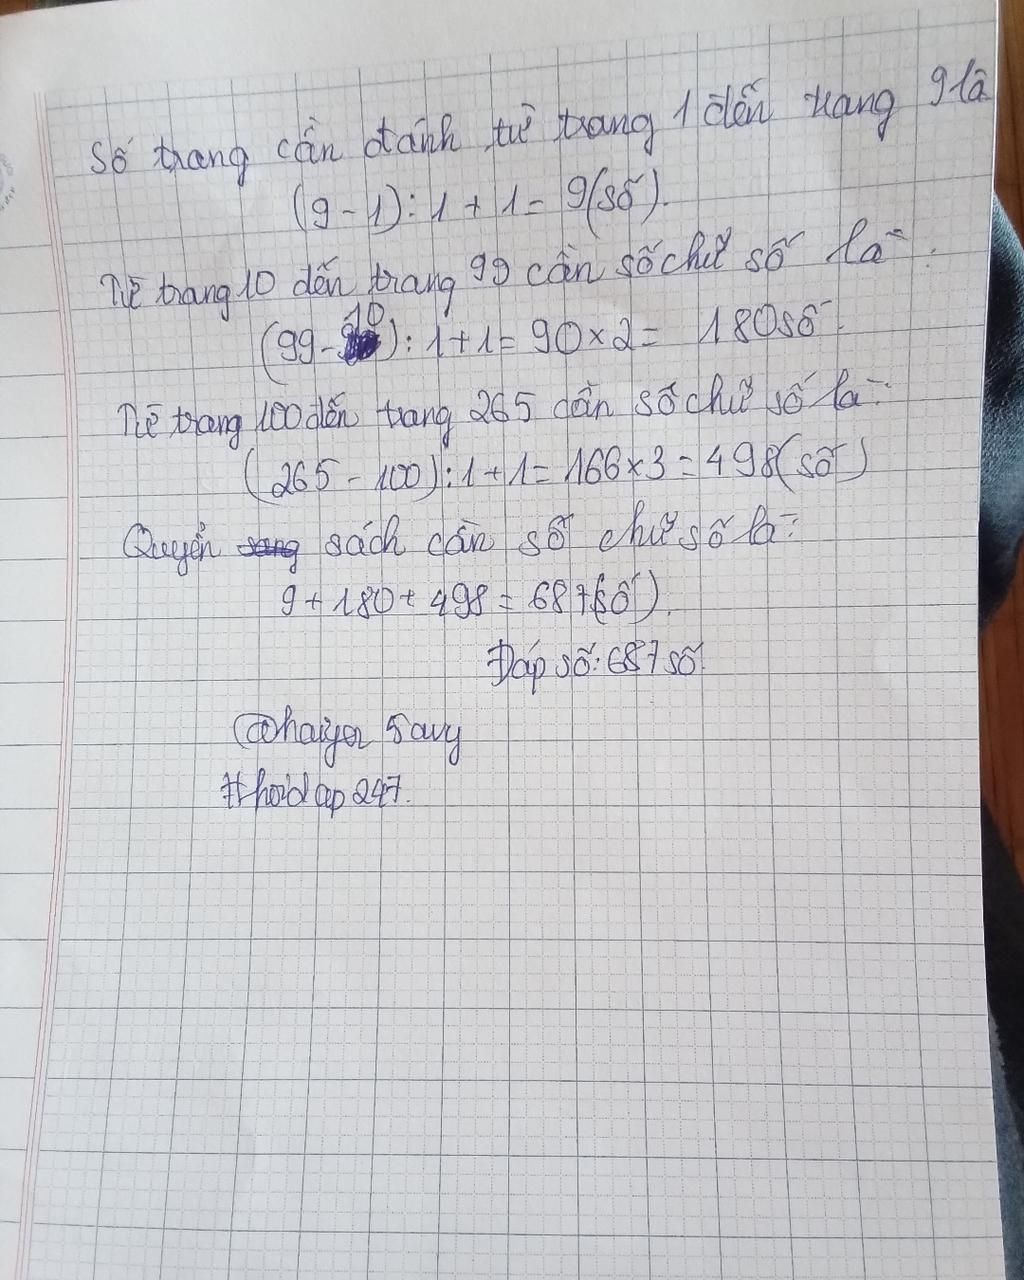 Số trang cần đánh từ trang 1 đến trang 9 là
(9 - 1) : 1 + 1 = 9 (số).
Từ trang 10 đến trang 99 cần số chữ số là :
(99 - 10) : 1 + 1 = 90 x 2 = 180 số.
Từ trang 100 đến trang 265 cần số chữ số là :
(265 - 100) : 1 + 1 = 166 x 3 = 498 (số)
Quyển sách cần số chữ số là :
9 + 180 + 498 = 687 (số).
Đáp số : 687 số
#hoidap247.